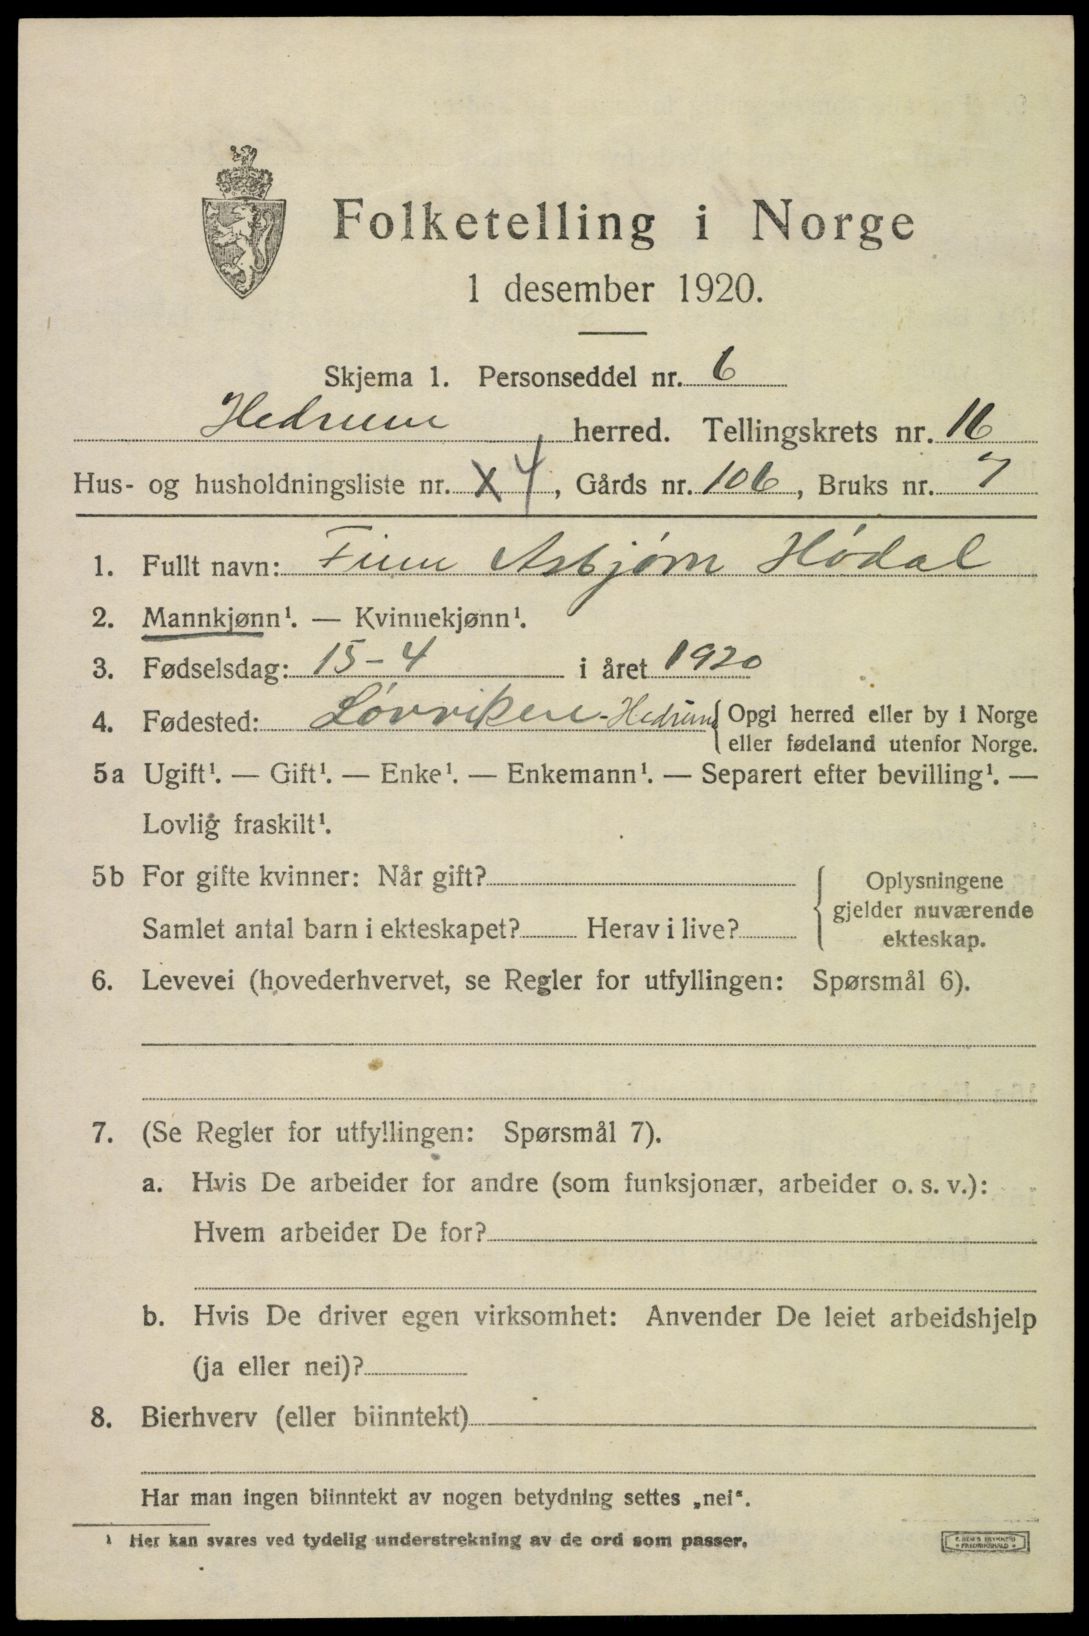 Folketelling i Norge
1 desember 1920.
Skjema 1. Personseddel nr. 6
Hedrum herred. Tellingskrets nr. 16
Hus- og husholdningsliste nr. 4, Gårds nr. 106, Bruks nr. 7
1. Fullt navn: Finn Asbjørn Hódal
2. Mannkjønn¹. — Kvinnekjønn¹.
3. Fødselsdag: 15-4 i året 1920
4. Fødested: Hedrum { Opgi herred eller by i Norge
eller fødeland utenfor Norge.
5a Ugift¹. — Gift¹. — Enke¹. — Enkemann¹. — Separert efter bevilling¹. —
Lovlig fraskilt¹.
5b For gifte kvinner: Når gift?
Samlet antal barn i ekteskapet? Herav i live?
Oplysningene
gjelder nuværende
ekteskap.
6. Levevei (hovederhvervet, se Regler for utfyllingen: Spørsmål 6).
7. (Se Regler for utfyllingen: Spørsmål 7).
a. Hvis De arbeider for andre (som funksjonær, arbeider o. s. v.):
Hvem arbeider De for?
b. Hvis De driver egen virksomhet: Anvender De leiet arbeidshjelp
(ja eller nei)?
8. Bierhverv (eller biinntekt)
Har man ingen biinntekt av nogen betydning settes „nei“.
¹ Her kan svares ved tydelig understrekning av de ord som passer.